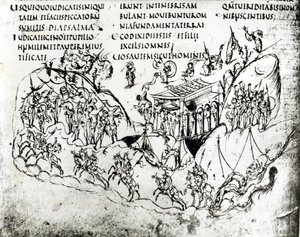 USQUOQUOIUDICATISINIQUI
TATEM ETFACIESPECCATORU
SUMITIS DIAPSALMA
IUDICATEEGENOETPUPILLO
HUMILEMETPAUPEREMIUS
TIFICATE
ERUNTINTENEBRISAM
BULANT MOUEBUNTUROM
NIAFUNDAMENTATERRAE
EGODIXIDIIESTIS ETFILII
EXCELSIOMNES
UOSAUTEMSICUTHOMINES
NIBUSGENTIBUS